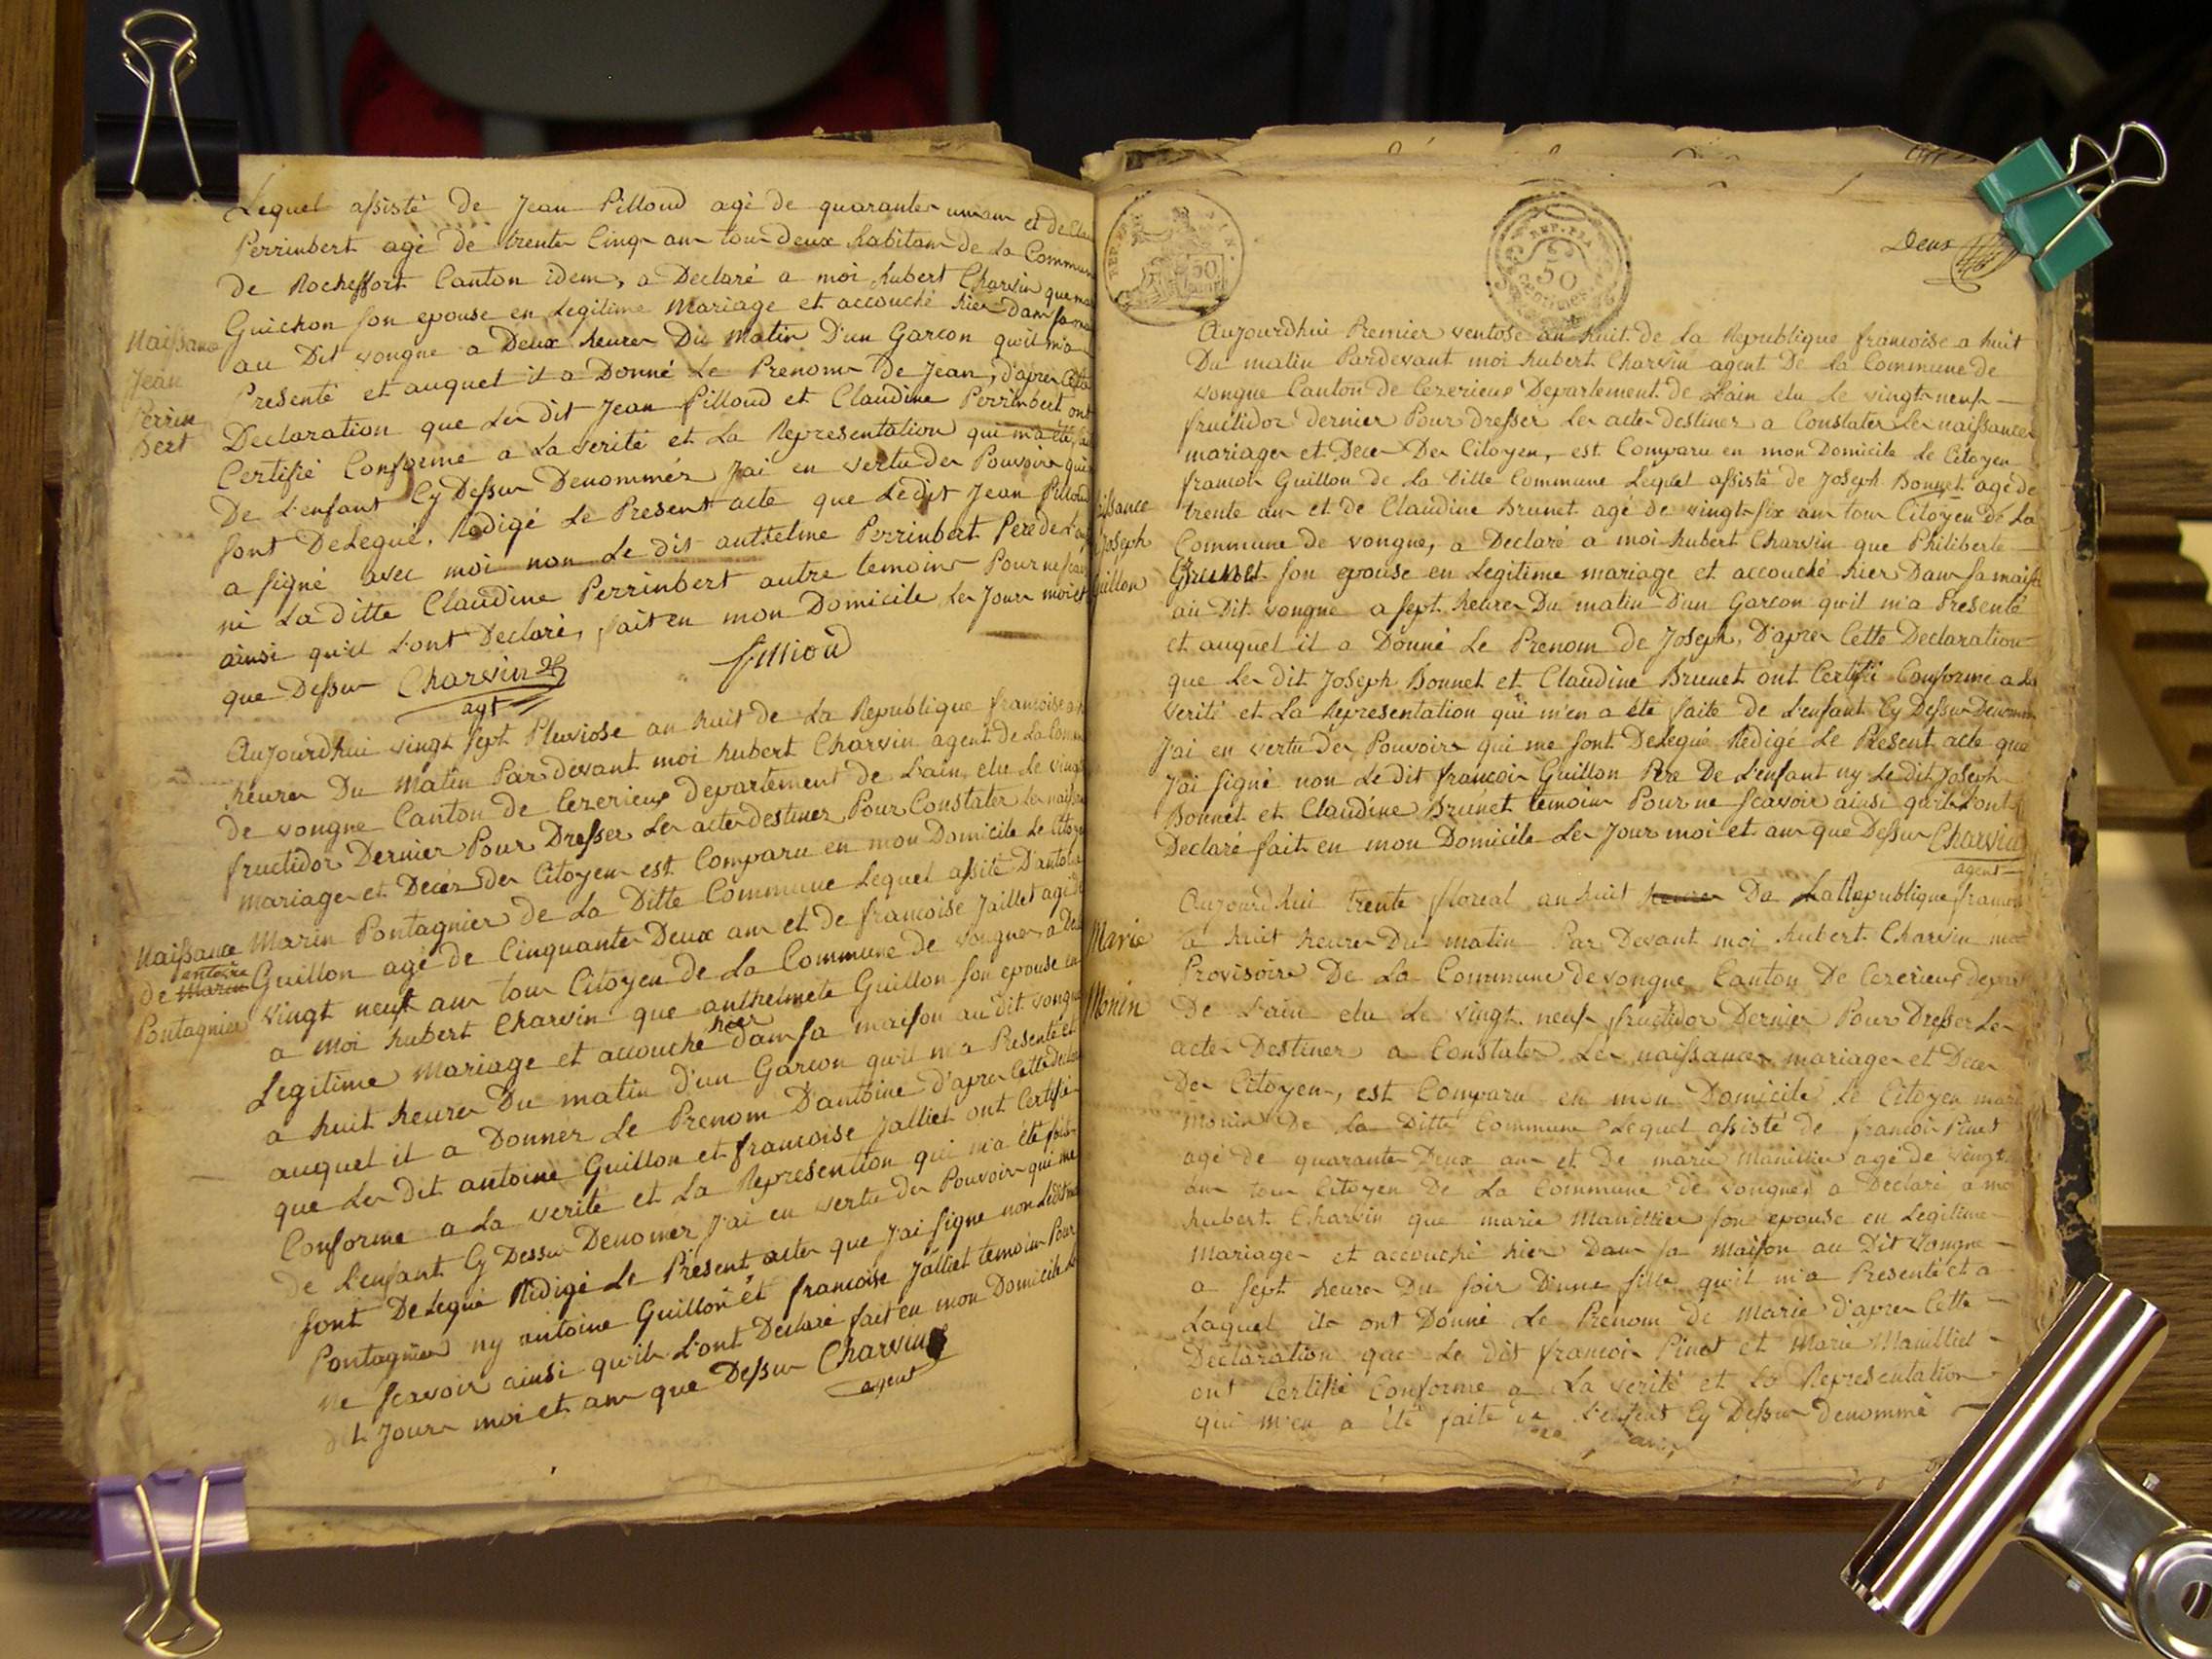 Lequel assisté de Jean Pilloud agé de quarante un an et de Clau
Perrinbert agé de trente Cinq ans tous deux habitans de La Commun
de Rocheffort Canton idem, a Declaré a moi hubert Charvin que
Guichon son epouse en Legitime Mariage et accouché hier dans sa
au Dit vongne a Deux heures Du Matin D'un Garcon qu'il m'a
Naissance
Jean
Perrin
bert
Presenté et auquel il a Donné Le Prenom de Jean, d'apres Cette
Declaration que Les dit Jean Pilloud et Claudine Perrinbert ont
Certifié Conforme a La verité et La Representation qui m'a été
De L'enfant Cy Dessus Denommés J'ai en vertu des Pouvoirs qui
sont Delegué, Redigé Le Present acte que Ledit Jean Pilloud
a signé avec moi non Le dit anthelme Perrinbert Pere de L'en
ni La ditte Claudine Perrinbert autre temoins Pour ne sca
ainsi qu'il L'ont Declaré, fait en mon Domicile Les Jours mois et
que Dessus Charvin agt Pilliod
Aujourdhui vingt sept Pluviose an huit de La Republique francoise a
heures Du Matin Par devant moi hubert Charvin agent de La Comm
de vongne Canton de Cezerieux departement de L'ain, elu Le vingt
fructidor Dernier Pour Dresser Les actes destinez Pour Constater Les naiss
mariages et Deces des Citoyens est Comparu en mon Domicile Le Citoy
Naissance
de Marin
antoine
Pontagnier
Marin Pontagnier de La Ditte Commune Lequel assité D'antoi
Guillon agé de Cinquante Deux ans et de francoise Jaillet agé
vingt neuf ans tous Citoyen de La Commune de vongne, a De
a moi hubert Charvin que anthelmete Guillon son epouse en
Legitime Mariage et accouché hier dans sa maison au dit vongne
a huit heures Du matin d'un Garcon qu'il m'a Presenté et
auquel il a Donner Le Prenom D'antoine d'apres Cette
que Les dit antoine Guillon et francoise Jalliet ont Certifié
Conforme a La verité et La Represention qui m'a été
de L'enfant Cy Dessus Denomer J'ai en vertu des Pouvoirs qui me
sont Delegué Redigé Le Present actes que J'ai signe non Ledit
Pontagnier ny antoine Guillon et francoise Jalliet temoins Pour
ne scavoir ainsi qu'ils L'ont Declaré fait en mon Domicile Le
dit Jours mois et an que Dessus Charvin
agent
REP. FRA
50
centimes
Deux
Aujourdhui Premier ventose an huit de La Republique francoise a huit
Du matin Pardevant moi hubert Charvin agent De La Commune de
vongne Canton de Cezerieux Departement de L'ain elu Le vingt neuf
fructidor dernier Pour dresser Les actes destinez a Constater Les naissances
mariages et Deces Des Citoyens, est Comparu en mon Domicile Le Citoyen
francois Guillon de La Ditte Commune Lequel assisté de Joseph Bonnet agé de
issance
Joseph
uillon
trente ans et de Claudine Brunet agé de vingt six ans tous Citoyen de La
Commune de vongne, a Declaré a moi hubert Charvin que Philiberte
Brunet son epouse en Legitime mariage et accouché hier Dans sa maiso
au Dit vongne a sept heures Du matin D'un Garcon qu'il m'a Presenté
et auquel il a Donné Le Prenom de Joseph, D'apres Cette Declaration
que Les dit Joseph Bonnet et Claudine Brunet ont Certifié Conforme a La
verité et La Representation qui m'en a été faite de L'enfant Cy Dessus Denomm
J'ai en vertu des Pouvoirs qui me sont Delegué Redigé Le Present acte que
J'ai signé non Le dit francois Guillon Pere De L'enfant ny Le dit Joseph
Bonnet et Claudine Brunet temoins Pour ne scavoir ainsi qu'ils L'ont
Declaré fait en mon Domicile Les Jour moi et an que Dessus Charvin
agent
Aujourdhui trente floreal an huit heures De La Republique francoi
Marie
Monin
a huit heures Du matin Par Devant moi hubert Charvin
Provisoire De La Commune de vongne Canton De Cezerieux depar
De L'ain elu Le vingt neuf fructidor Dernier Pour Dresser Les
actes Destinez a Constater Les naissances mariages et Deces
Des Citoyens, est Comparu en mon Domicile Le Citoyen
Monin De La Ditte Commune Lequel assisté de francois Pinet
agé de quarante Deux ans et De marie Manillier agé de vingt
ans tous Citoyen De La Commune de vongne, a Declaré a mo
hubert Charvin que marie Manillier son epouse en Legitime
Mariage et accouché hier Dans sa Maison au Dit Vongne
a sept heures Du soir D'une fille qu'il m'a Presenté et a
Laquel ils ont Donné Le Prenom de Marie d'apres Cette
Declaration que Le dit francois Pinet et Marie Manilliel
ont Certifié Conforme a La verité et La Representation
qui m'en a été faite de L'enfant Cy Dessus denommé